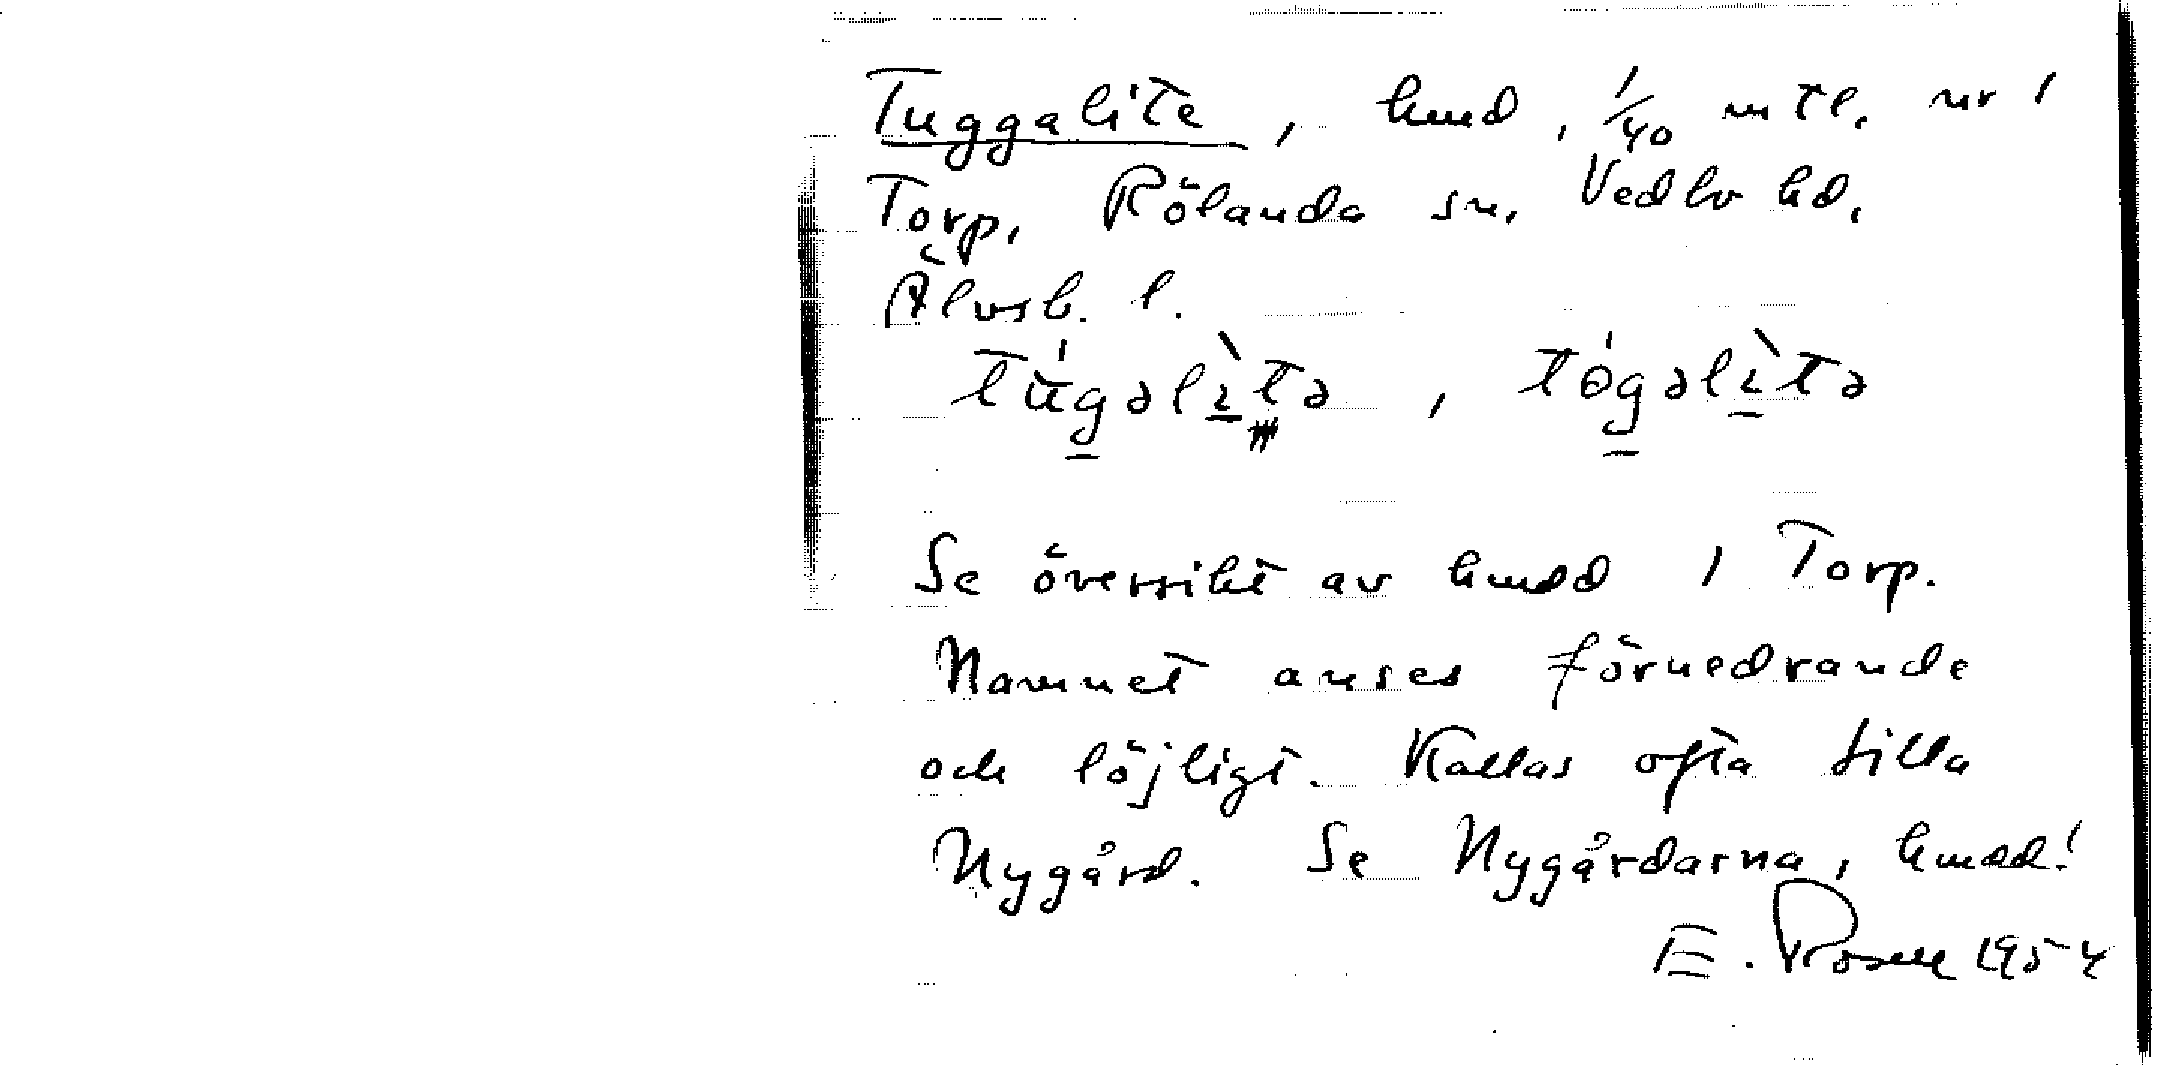 Tuggalite, hmd, 1/40 mtl. nr 1
Torp, Rölanda sn, Vedbo hd,
Älvsb. l.
túgəlìtə, tógəlìtə
Se översikt av hmdd i Torp.
Namnet anses förnedrande
och löjligt. Kallas ofta lilla
Nygård. Se Nygårdarna, hmdd!
E. Rosell 1954